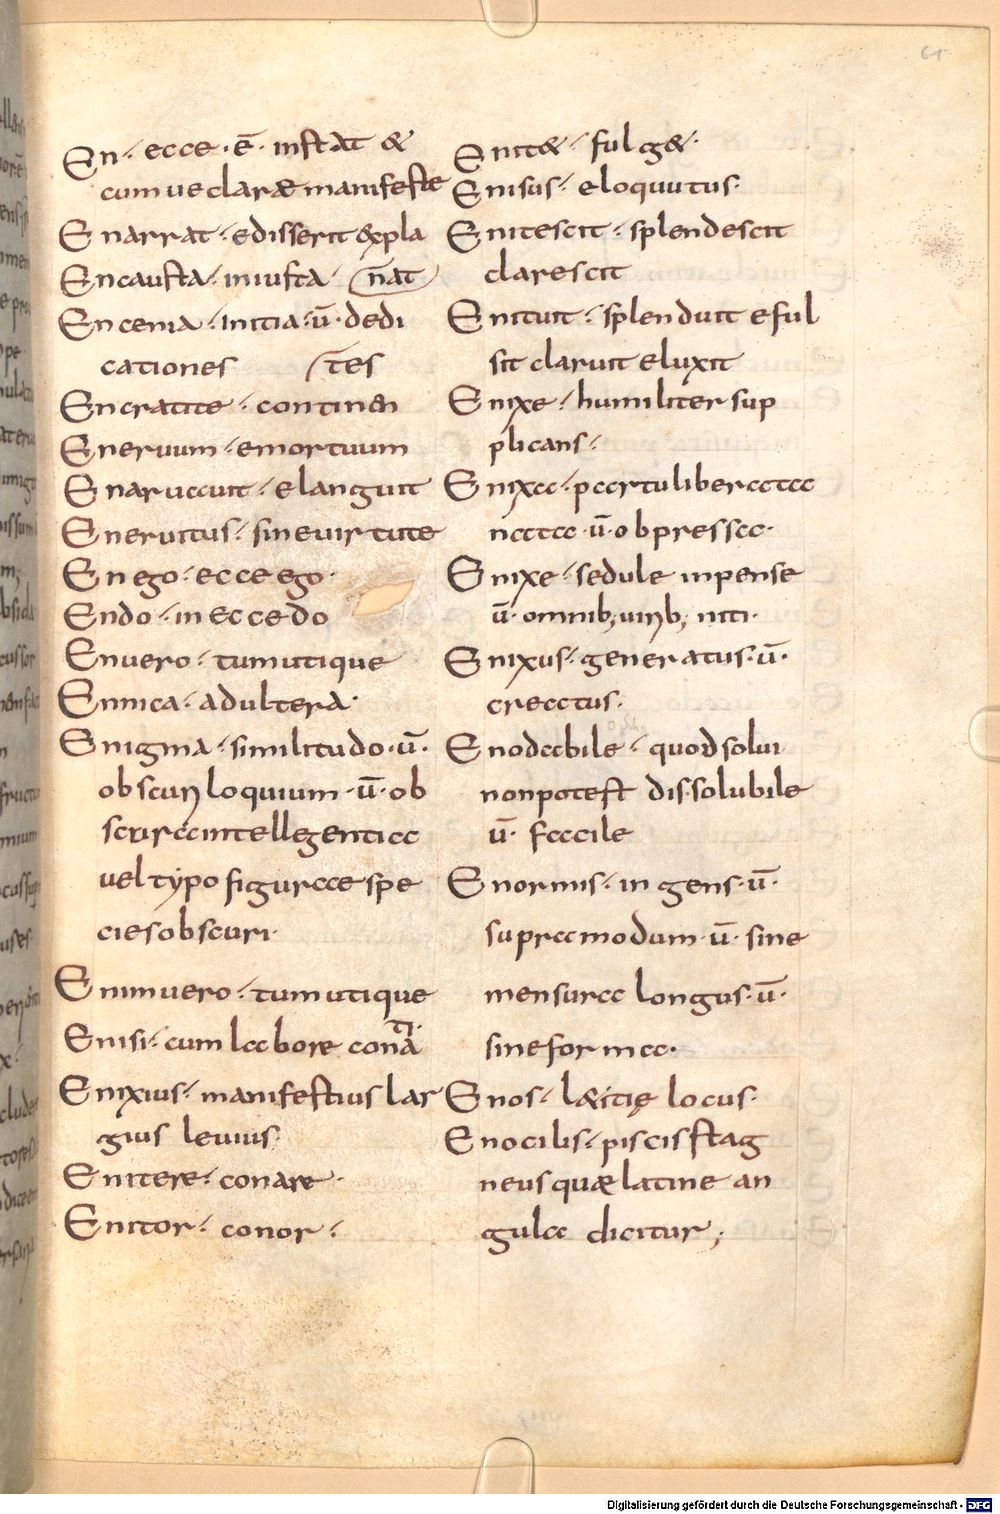 61
En· ecce· ē· instāt &
cum ue claræ manifeste
Enarrat· edisserit & expla
Encausta· iniusta· n̄at
Encenia· initia· ū· dedi
cationes tes
Encratite· continen
Eneruum· emortuum
Enaruccuit· elanguit
Eneruitus· sine uirtute
En ego· ecce ego·
Endo· in Ecce do
Enuero· tum utique
Ennica· adultera·
Enigma· similitudo· ū·
obscurꝝ loquium· ū· ob
scurirccintellegenticc
uel typo figurcce spe
cies obscuri·
Enimuero· tum utique
Enisi· cum lccbore conāt
Enixius· manifestius lar
gius leuius·
Enitere· conare·
Enitor· conor·
Enit&· fulg&·
Enisus· eloquutus·
Enitescit· splendescit
clarescit
Enituit· splenduit eful
sit claruit eluxit
Enixe· humiliter sup
plicans·
Enixcc· pccrtu liberccтcc
ncctcc· ū· obpresscc·
Enixe· sedule inpense
ū· omnib; uirꝝb; niti·
Enixus· generatus· ū·
crecctus·
Enodccbile· quod solui
non potest dissolubile
ū· fccile
Enormis· in gens· ū·
suprccmodum· ū· sine
mensurcc longus· ū·
sine formcc·
Enos· l&itię locus·
Enocilis· piscis stag
neus quæ latine an
gulcc dicitur;
Digitalisierung gefördert durch die Deutsche Forschungsgemeinschaft - DFG